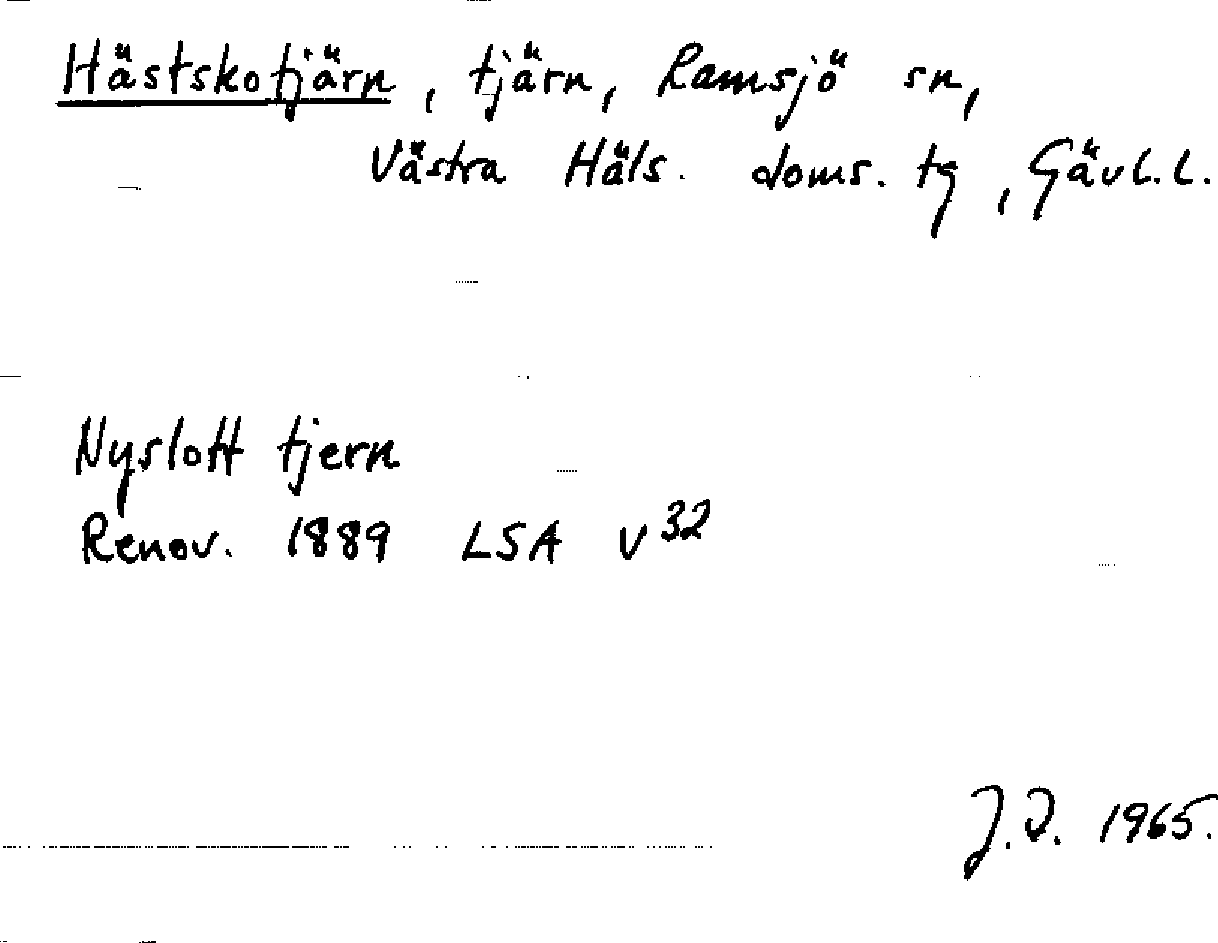 Hästskotjärn, tjärn, Ramsjö sn,
Västra Häls. doms. tg, Gävl. L.
Nyslott tjern
Renov. 1889 LSA V³²
J.D. 1965.